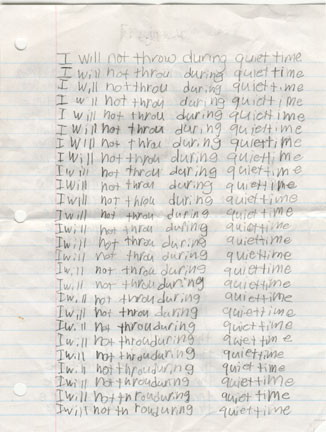 I will not throw during quiet time
I will not throu during quiet time
I will not throu during quiet time
I will not throu during quiet time
I will not throu during quiet time
I will not throu during quiet time
I will not throu during quiet time
I will not throu during quiet time
I will not throu during quiet time
I will not throu during quiet time
I will not throu during quiet time
I will not throu during quiet time
I will not throu during quiet time
I will not throu during quiet time
I will not throu during quiet time
I will not throu during quiet time
I will not throu during quiet time
I will not throu during quiet time
I will not throu during quiet time
I will not throu during quiet time
I will not throu during quiet time
I will not throu during quiet time
I will not throu during quiet time
I will not throu during quiet time
I will not throu during quiet time
I will not throu during quiet time